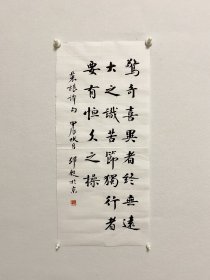 驚奇喜異者終無遠
大之識苦節獨行者
要有恒久之操
菜根譚句 甲辰秋月 於京